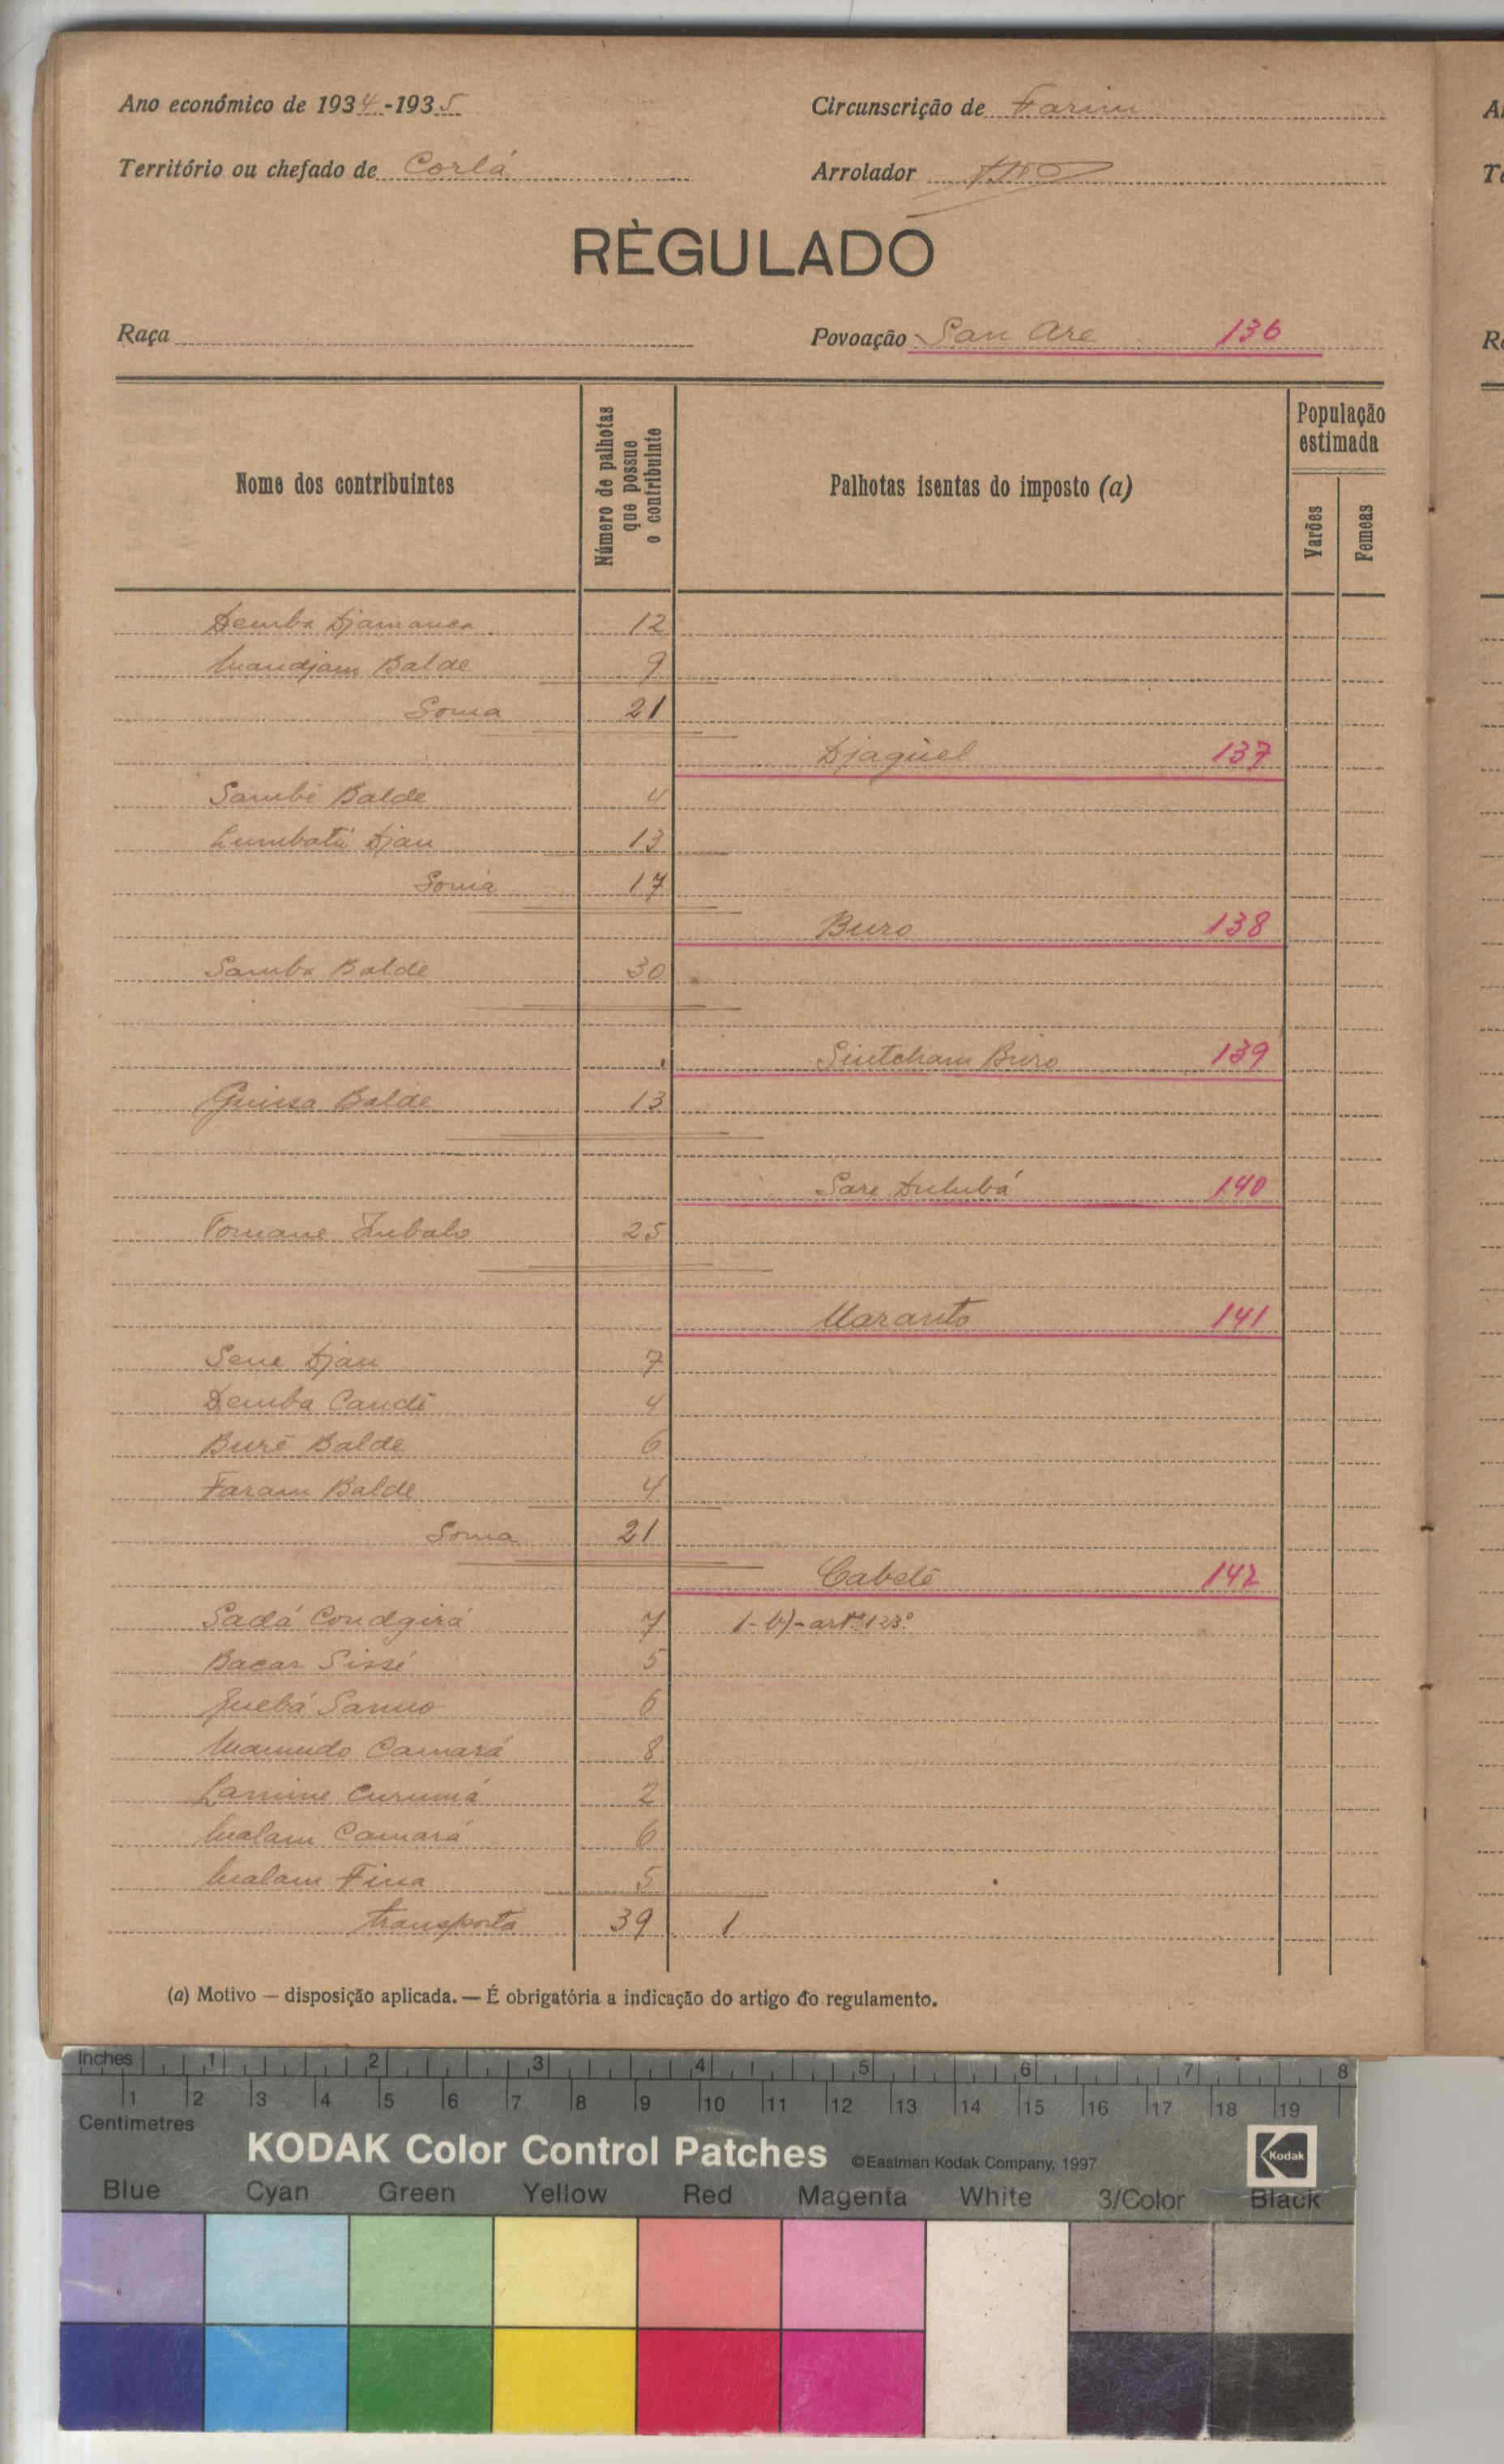 Ano económico de 1934-1935 Circunscrição de Farim
Território ou chefado de Corlá Arrolador
RÈGULADO
Raça Povoação San Are 136
Nome dos contribuintes
Número de palhotas que possue o contribuinte
Palhotas isentas do imposto (a)
População estimada
Varões
Femeas
Demba Djamanca 12
Mandjam Balde 9
Soma 21
Djaguel 137
Sambê Balde 4
Lumbatú Djau 13
Soma 17
Buro 138
Samba Balde 30
Sintcham Buro 139
Guissa Balde 13
Sare Dulubá 140
Tomane Jubalo 25
Maranto 141
Sene Djau 7
Demba Candê 4
Burê Balde 6
Faram Balde 4
Soma 21
Cabelê 142
Sadá Condgirá 7 1-b)-artº.123º.
Bacar Sissé 5
Quebá Sanno 6
Mamudo Camará 8
Lamine Curumá 2
Malam Camará 6
Malam Fina 5
transporta 39 1
(a) Motivo — disposição aplicada. — É obrigatória a indicação do artigo do regulamento.
Inches 1 2 3 4 5 6 7 8
1 2 3 4 5 6 7 8 9 10 11 12 13 14 15 16 17 18 19
Centimetres
KODAK Color Control Patches ©Eastman Kodak Company, 1997 Kodak
Blue Cyan Green Yellow Red Magenta White 3/Color Black